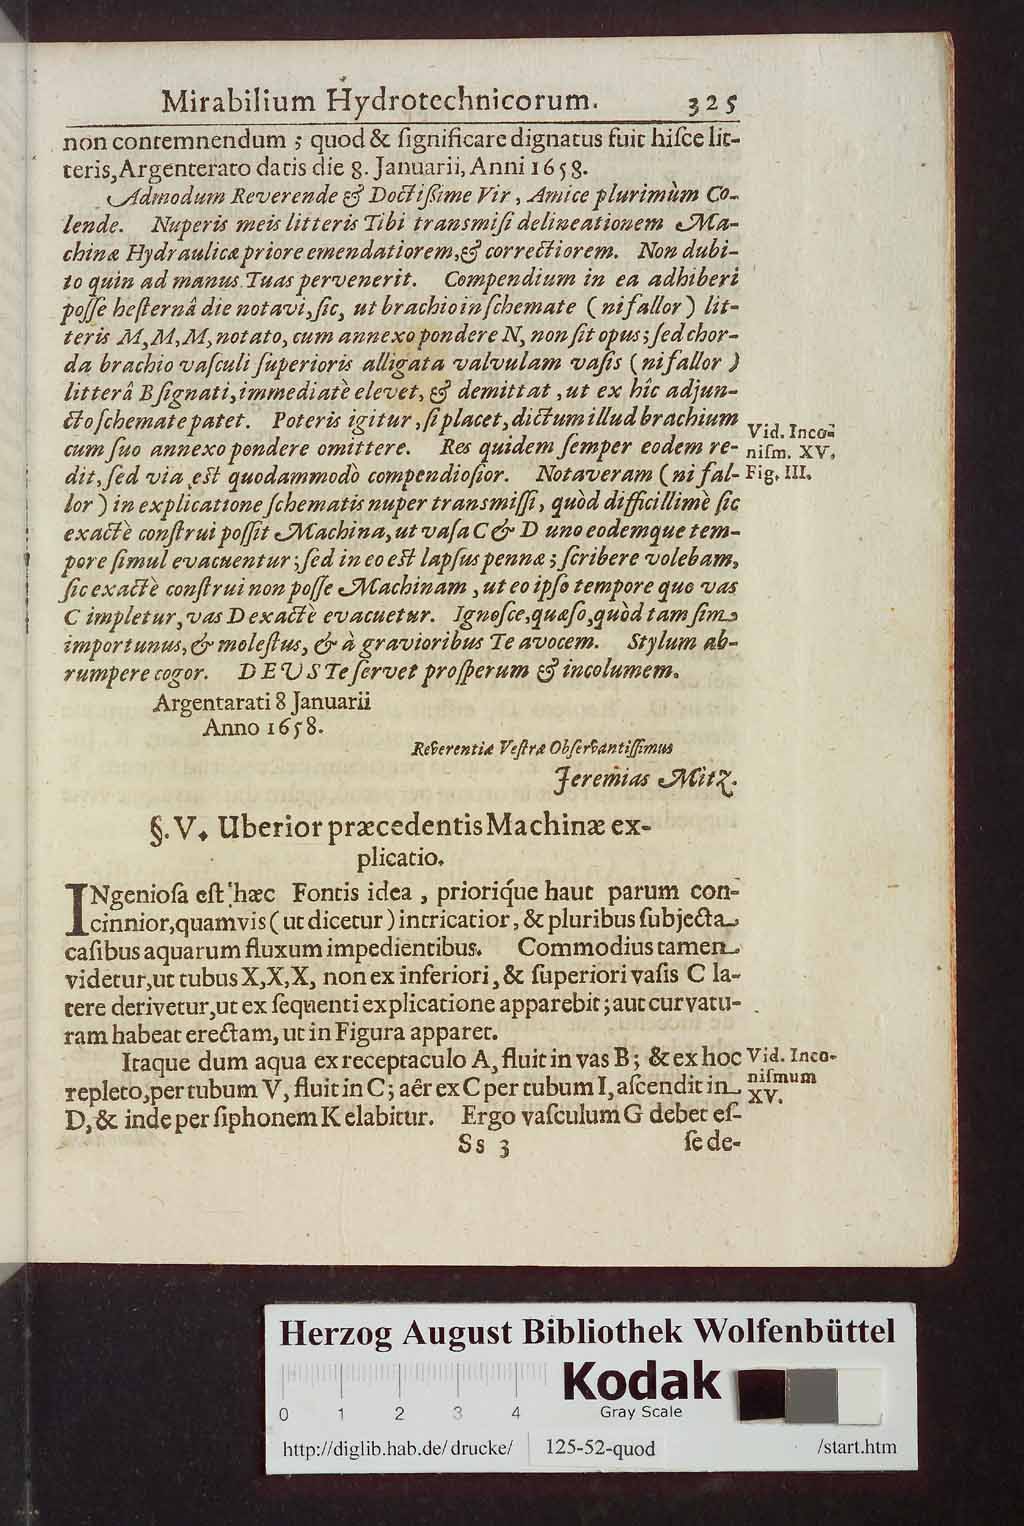 Mirabilium Hydrotechnicorum. 325
non contemnendum ; quod & ſignificare dignatus fuit hiſce lit-
teris, Argenterato datis die 8. Januarii, Anni 1658.
Admodum Reverende & Doctiſſime Vir, Amice plurimùm Co-
lende. Nuperis meis litteris Tibi transmiſi delineationem Ma-
chinæ Hydraulicæ priore emendatiorem, & correctiorem. Non dubi-
to quin ad manus Tuas pervenerit. Compendium in ea adhiberi
poſſe heſternâ die notavi, ſic, ut brachio in ſchemate ( ni fallor ) lit-
teris M, M, M, notato, cum annexo pondere N, non ſit opus; ſed chor-
da brachio vaſculi ſuperioris alligata valvulam vaſis ( ni fallor )
litterâ B ſignati, immediatè elevet, & demittat, ut ex hîc adjun-
cto ſchemate patet. Poteris igitur, ſi placet, dictum illud brachium
cum ſuo annexo pondere omittere. Res quidem ſemper eodem re-
dit, ſed via eſt quodammodò compendioſior. Notaveram ( ni fal-
lor ) in explicatione ſchematis nuper transmiſſi, quòd difficillimè ſic
exactè conſtrui poſſit Machina, ut vaſa C & D uno eodemque tem-
pore ſimul evacuentur; ſed in eo eſt lapſus pennæ; ſcribere volebam,
ſic exactè conſtrui non poſſe Machinam, ut eo ipſo tempore quo vas
C impletur, vas D exactè evacuetur. Ignoſce, quæſo, quòd tam ſim
importunus, & moleſtus, & à gravioribus Te avocem. Stylum ab-
rumpere cogor. DEUS Te ſervet proſperum & incolumem.
Vid. Inco-
niſm. XV.
Fig. III.
Argentarati 8 Januarii
Anno 1658.
Reverentiæ Veſtræ Obſervantiſſimus
Jeremias Mitz.
§. V. Uberior præcedentis Machinæ ex-
plicatio.
INgenioſa eſt hæc Fontis idea, priorique haut parum con-
cinnior, quamvis ( ut dicetur ) intricatior, & pluribus ſubjecta
caſibus aquarum fluxum impedientibus. Commodius tamen
videtur, ut tubus X, X, X, non ex inferiori, & ſuperiori vaſis C la-
tere derivetur, ut ex ſequenti explicatione apparebit; aut curvatu-
ram habeat erectam, ut in Figura apparet.
Itaque dum aqua ex receptaculo A, fluit in vas B; & ex hoc
repleto, per tubum V, fluit in C; aêr ex C per tubum I, aſcendit in
D, & inde per ſiphonem K elabitur. Ergo vaſculum G debet eſ-
Vid. Inco-
niſmum
XV.
Ss 3 ſe de-
Herzog August Bibliothek Wolfenbüttel
Kodak
Gray Scale
0 1 2 3 4
http://diglib.hab.de/drucke/ 125-52-quod /start.htm